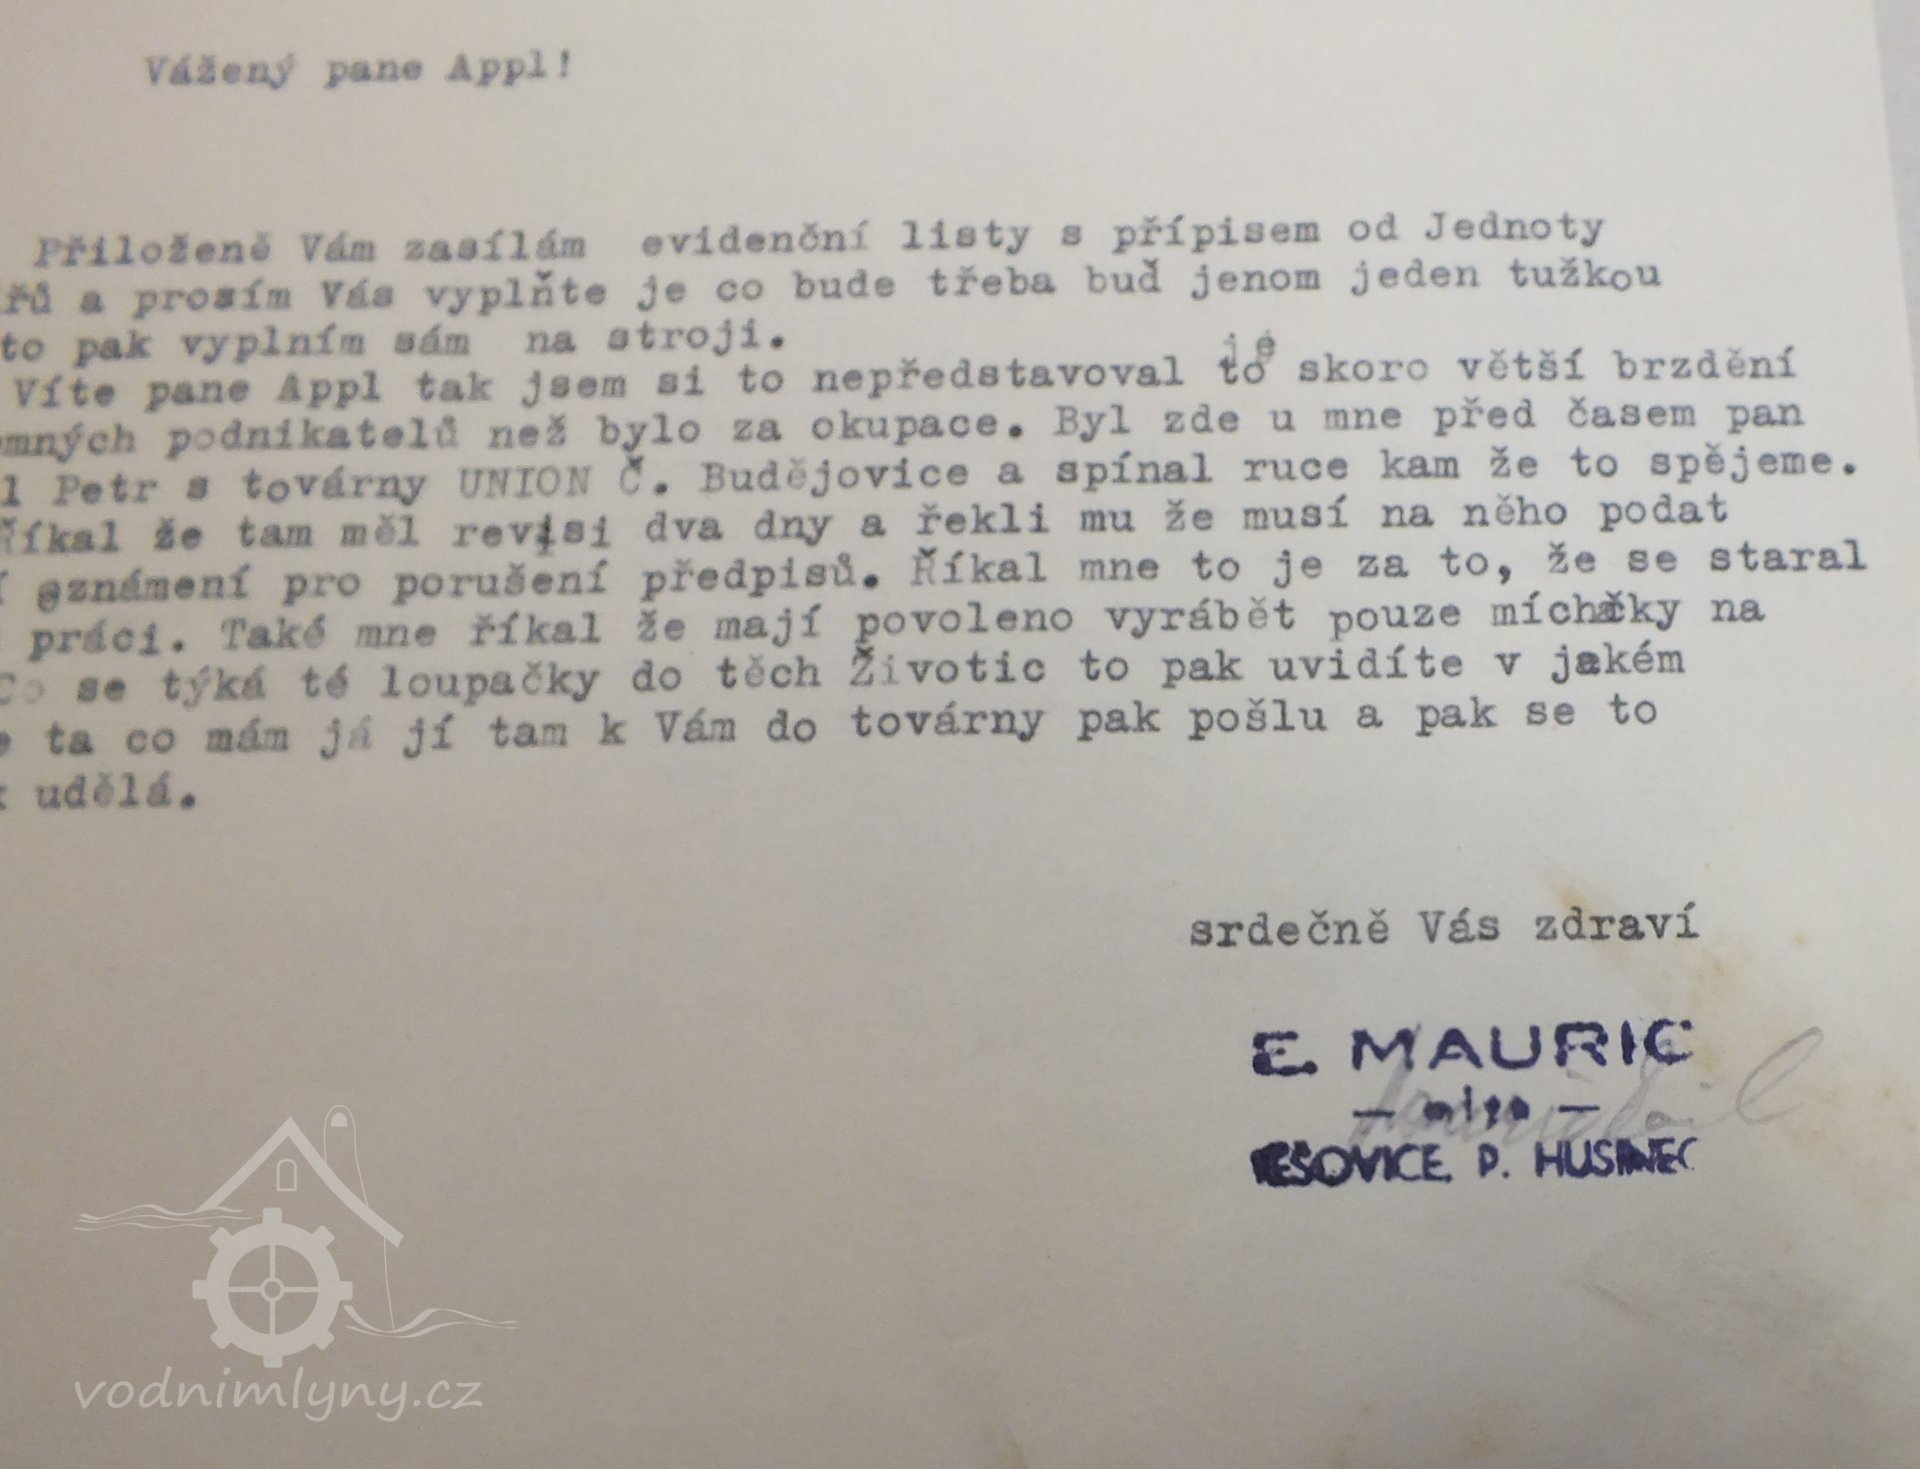 Vážený pane Appl!
Přiloženě Vám zasílám evidenční listy s přípisem od Jednoty
řů a prosím Vás vyplňte je co bude třeba buď jenom jeden tužkou
to pak vyplním sám na stroji.
je
Víte pane Appl tak jsem si to nepředstavoval to skoro větší brzdění
omných podnikatelů než bylo za okupace. Byl zde u mne před časem pan
l Petr s továrny UNION Č. Budějovice a spínal ruce kam že to spějeme.
Říkal že tam měl revisi dva dny a řekli mu že musí na něho podat
í oznámení pro porušení předpisů. Říkal mne to je za to, že se staral
práci. Také mne říkal že mají povoleno vyrábět pouze míchačky na
Co se týká té loupačky do těch Životic to pak uvidíte v jakém
e ta co mám já jí tam k Vám do továrny pak pošlu a pak se to
k udělá.
srdečně Vás zdraví
E. MAURIC
EŠOVICE P. HUSINEC
vodnimlyny.cz